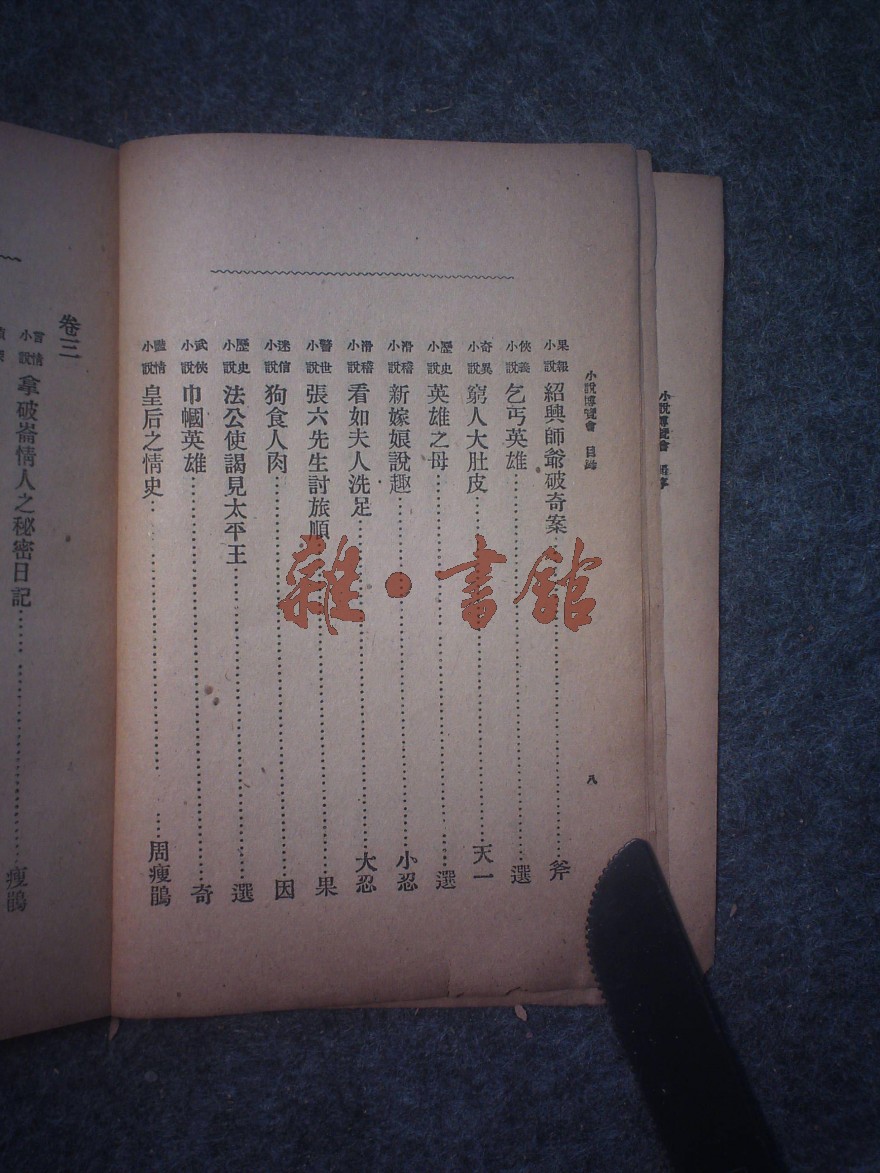 小說博覽會 目錄
八
果報小說 紹興師爺破奇案 斧
俠義小說 乞丐英雄 選
奇異小說 窮人大肚皮 天一
歷史小說 英雄之母 選
滑稽小說 新嫁娘說趣 小忍
滑稽小說 看如夫人洗足 大忍
警世小說 張六先生討旅順 果
迷信小說 狗食人肉 因
歷史小說 法公使謁見太平王 選
武俠小說 巾幗英雄 奇
豔情小說 皇后之情史 周瘦鵑
卷三
言情小說 拿破崙情人之秘密日記 瘦鵑
小說博覽會
雜·書館